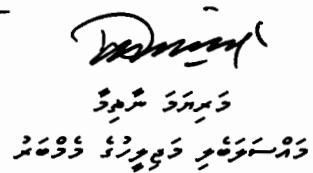 މަރިޔަމަ ނާޡިމާ
މައްސަލަބެލި މަޖިލީހުގެ މެމްބަރު